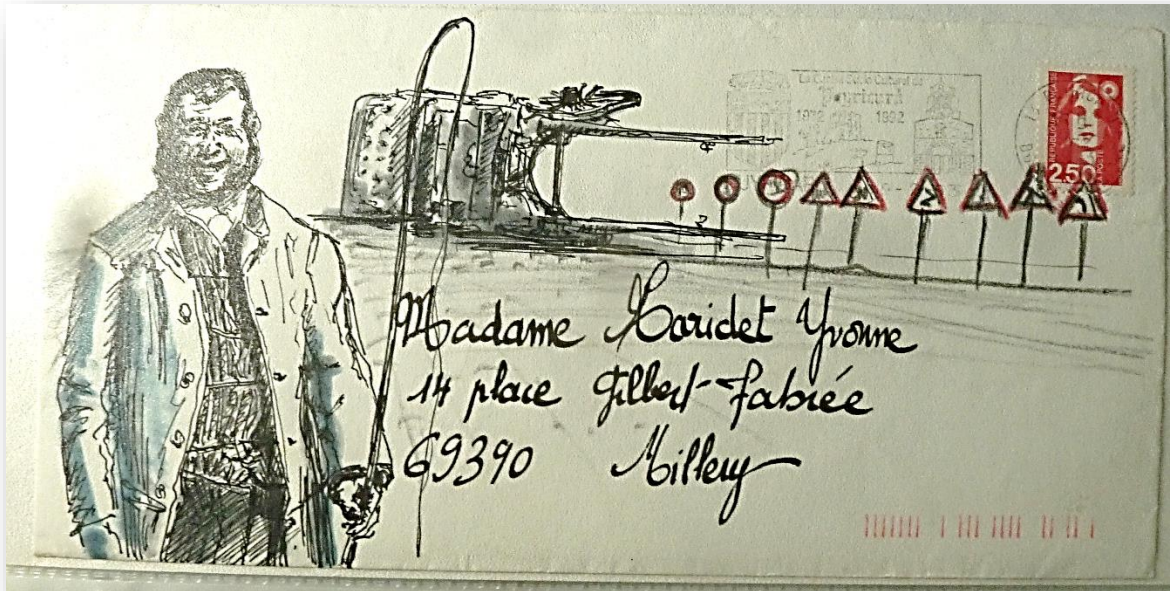 Puyricard
1992 1892
RÉPUBLIQUE FRANÇAISE
2.50
LA POSTE
Madame Maridet Yvonne
14 place Gilbert-Fabrée
69390 Millery